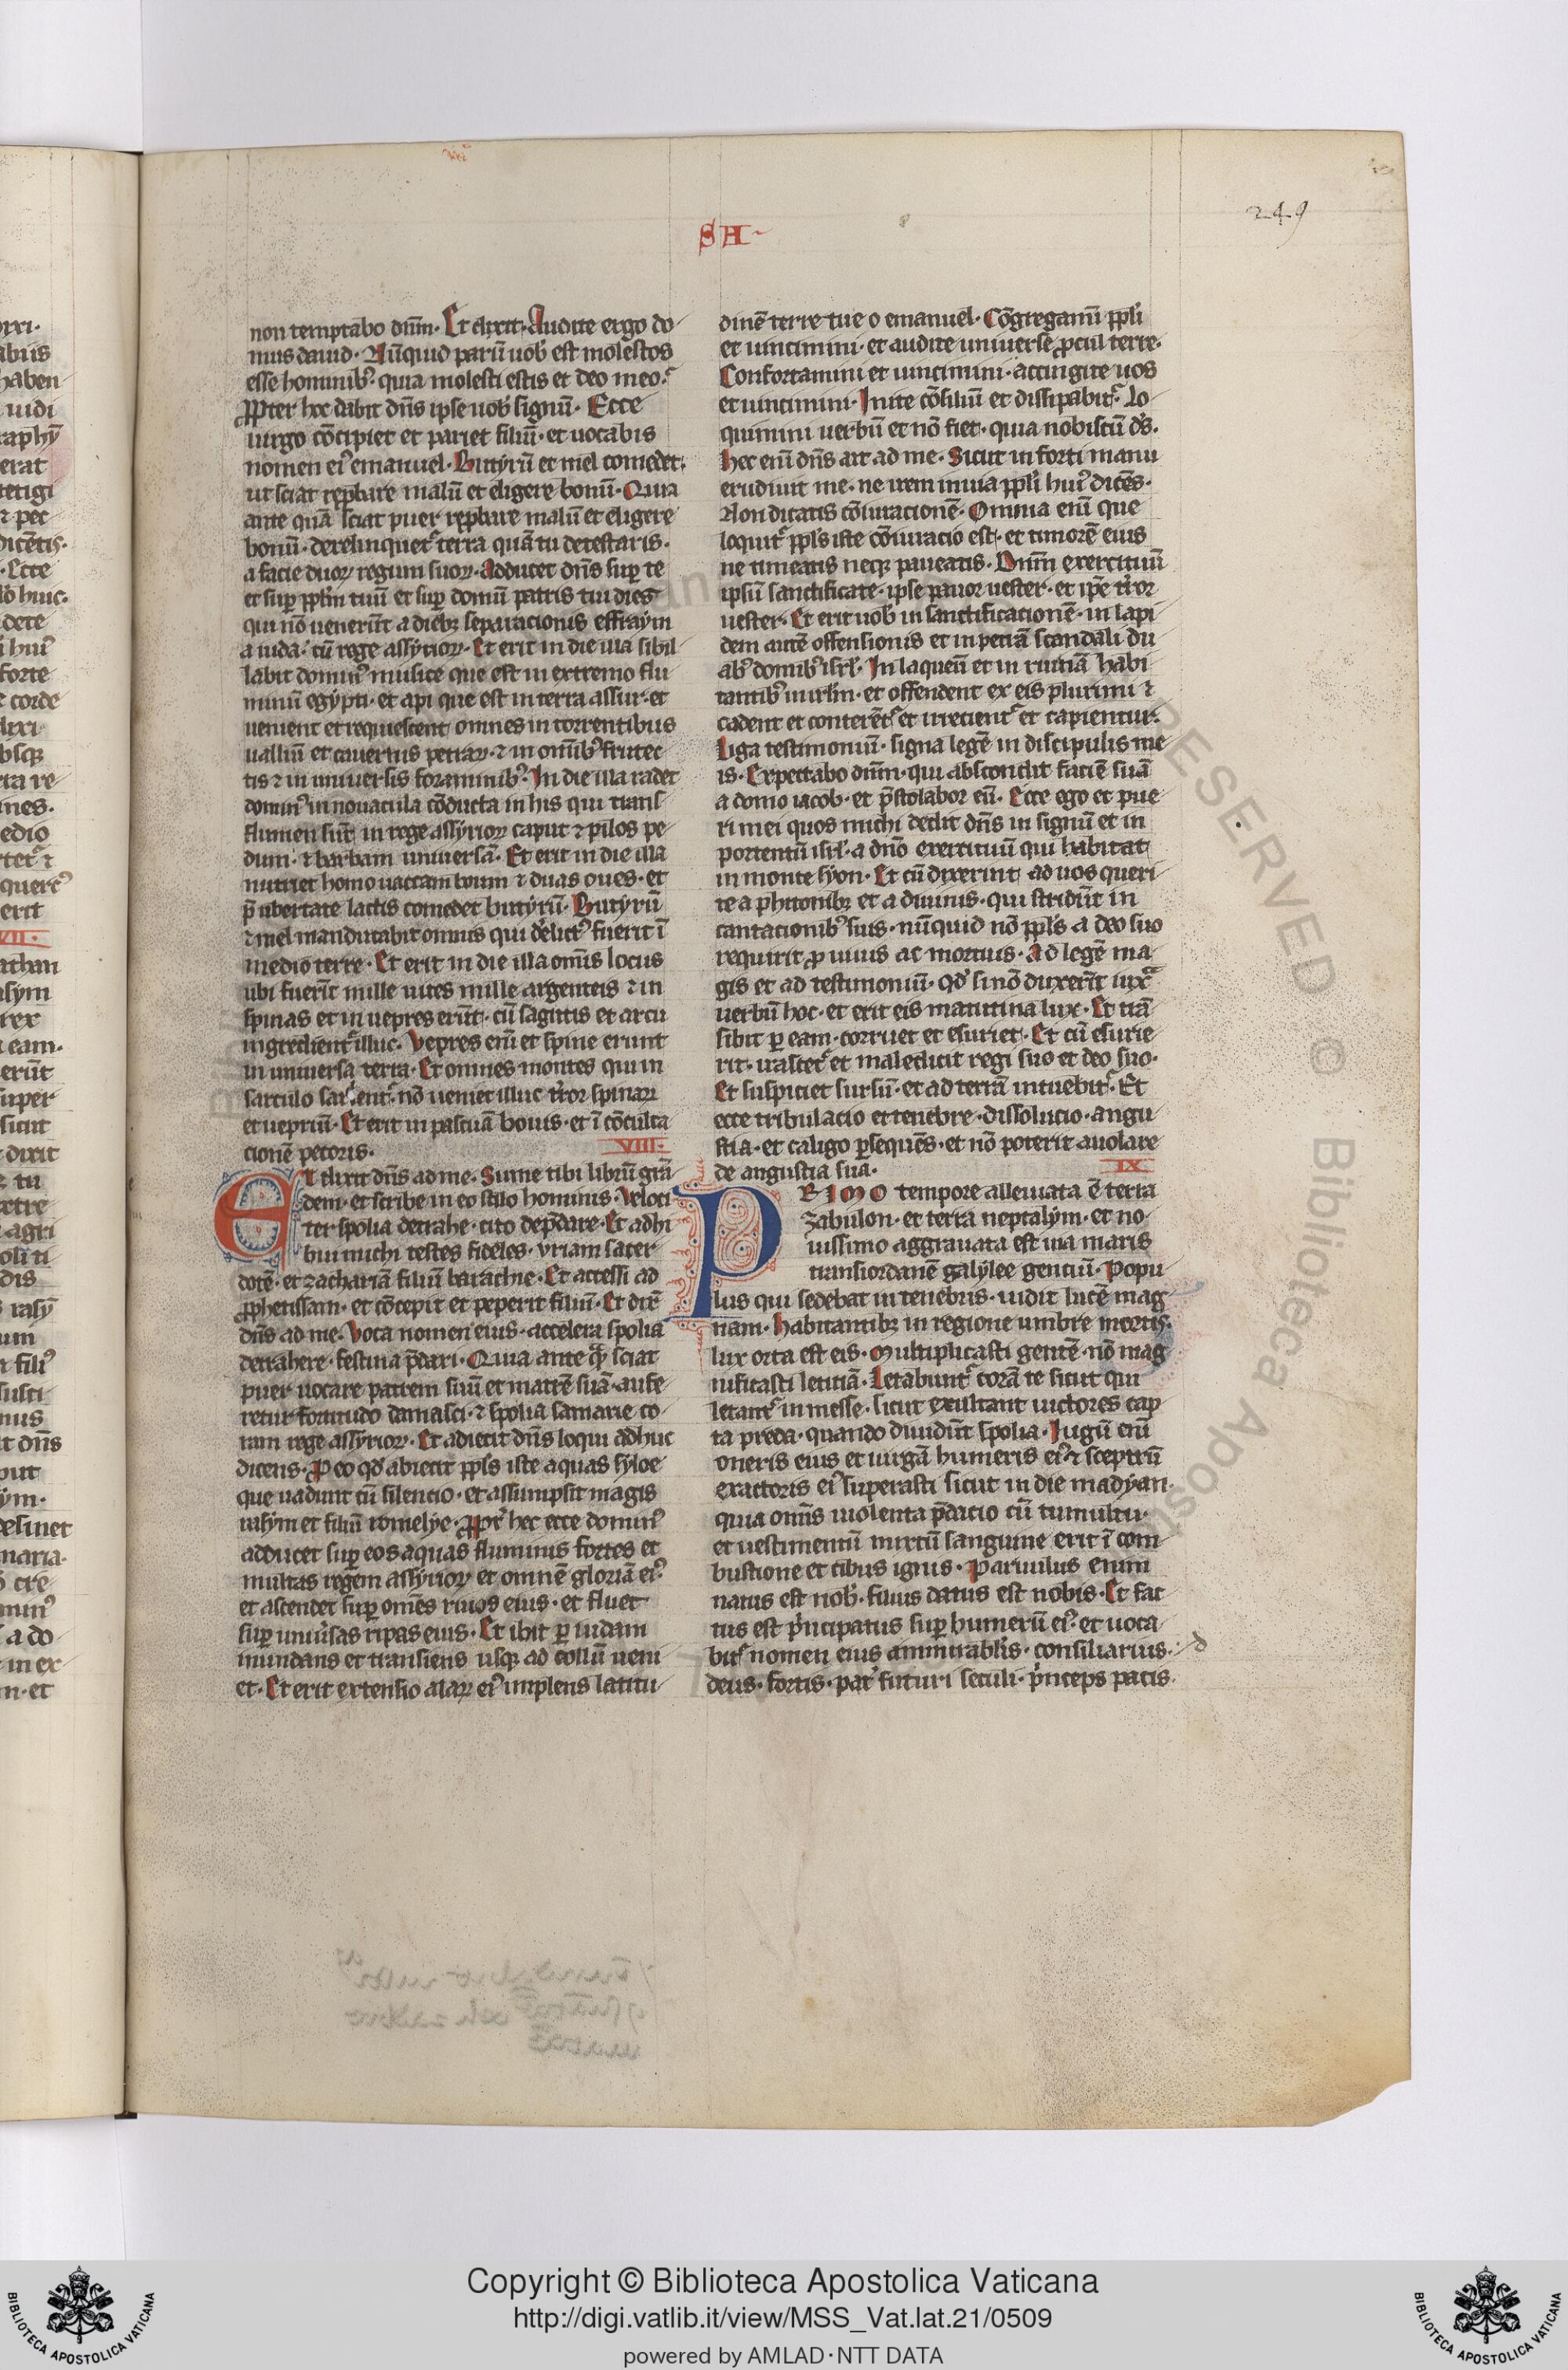 SA
249
non temptabo dnm̄. Et dixit. Audite ergo do
mus dauid. Nūquid parū uob̓ est molestos
esse hominibꝰ. quia molesti estis et deo meo.
Ꝓpter hoc dabit dn̄s ipse uob̓ signū. Ecce
uirgo cōcipiet et pariet filiū. et uocabis
nomen eiꝰ emanuel. Butyrū et mel comedet.
ut sciat rep̄bare malū et eligere bonū. Quia
ante quā sciat puer rep̄bare malū et eligere
bonū. derelinquet᷑ terra quā tu detestaris.
a facie duoꝝ regum suoꝝ. Adducet dn̄s suꝑ te
et suꝑ ppl̄m tuū et suꝑ domū patris tui dies
qui nō uenerūt a dieb; separacionis effraym
a iuda. cū rege assyrioꝝ. Et erit in die illa sibil
labit dominꝰ musice que est in extremo flu
minū egypti. et api que est in terra assur. et
uenient et requiescent omnes in torrentibus
ualliū et cauernis petraꝝ. ⁊ in om̄ibꝰ frutec
tis ⁊ in uniuersis foraminibꝰ. In die illa radet
dominꝰ in nouacula cōducta in his qui trans
flumen sūt. in rege assyrioꝝ caput ⁊ pilos pe
dum. ⁊ barbam uniuersā. Et erit in die illa
nutriet homo uaccam boum ⁊ duas oues. et
p̄ ubertate lactis comedet butyrū. Butyrū
⁊ mel manducabit omnis qui d̓elictꝰ fuerit ī
medio terre. Et erit in die illa om̄is locus
ubi fuerīt mille uites mille argenteis ⁊ in
spinas et in uepres erūt. cū sagittis et arcu
ingredient᷑ illuc. Vepres enī et spine erunt
in uniuersa terra. Et omnes montes qui in
sarculo sar.ent᷑. nō ueniet illuc t̓ror spinaꝝ
et uepriū. Et erit in pascuā bouis. et ī cōculca
cionē pecoris. VIII.
Et dixit dn̄s ad me. Sume tibi librū grā
dem. et scribe in eo stilo hominis. Veloci
ter spolia detrahe. cito dep̄dare. Et adhi
bui michi testes fideles. vriam sacer
dotē. et zachariā filiū barachie. Et accessi ad
ꝓphetissam. et cōcepit et peperit filiū. Et dix̄
dn̄s ad me. Voca nomen eius. accelera spolia
detrahere. festina p̄dari. Quia ante q̄ sciat
puer uocare patrem suū et matrē suā. aufe
retur fortitudo damasci. ⁊ spolia samarie co
ram rege assyrioꝝ. Et adiecit dn̄s loqui adhuc
dicens. Ꝓ eo qd̓ abiecit ppl̄s iste aquas syloe
que uadunt cū silencio. et assumpsit magis
rasym et filiū romelye. Ꝓpt̓ hec ecce dominꝰ
adducet suꝑ eos aquas fluminis fortes et
multas regem assyrioꝝ et omnē gloriā eiꝰ.
et ascendet suꝑ om̄es riuos eius. et fluet
suꝑ uniu̓sas ripas eius. Et ibit ꝑ iudam
inundans et transiens usq; ad collū ueni
et. Et erit extensio alaꝝ eiꝰ implens latitu
dinē terre tue o emanuel. Cōgregaminī ppl̄i
et uincimini. et audite uniuerse ꝓcul terre.
Confortamini et uincimini. accingite uos
et uincimini. Inite cōsiliū et dissipabit᷑. Lo
quimini uerbū et nō fiet. quia nobiscū ds̄.
Hec enī dn̄s ait ad me. Sicut in forti manu
erudiuit me. ne irem in uia ppl̄i huiꝰ dicēs.
Non dicatis cōiuracionē. Omnia enī que
loquit᷑ ppl̄s iste cōiuracio est. et timorē eius
ne timeatis neq; paueatis. Dnm̄ exercituū
ipsū sanctificate. ipse pauor uester. et ip̄e t̓ror
uester. Et erit uob̓ in sanctificacionē. in lapi
dem autē offensionis et in petrā scandali du
abꝰ domibꝰ isrl̄. In laqueū et in ruinā habi
tantibꝰ iurl̄m. et offendent ex eis plurimi ⁊
cadent et conterēt᷑ et irretient᷑ et capientur.
Liga testimoniū. signa legē in discipulis me
is. Expectabo dnm̄. qui abscondit faciē suā
a domo iacob. et p̄stolabor eū. Ecce ego et pue
ri mei quos michi dedit dn̄s in signū et in
portentū isrl̄. a dn̄o exercituū qui habitat
in monte syon. Et cū dixerint ad uos queri
te a phitonib; et a diuinis. qui stridūt in
cantacionibꝰ suis. nūquid nō ppl̄s a deo suo
requirit ꝓ uiuis ac mortuis. Ad legē ma
gis et ad testimoniū. qd̓ si nō dixerīt iuxᵃ
uerbū hoc. et erit eis matutina lux. Et trā
sibit ꝑ eam. corruet et esuriet. Et cū esurie
rit. irascet᷑ et maledicit regi suo et deo suo.
Et suspiciet sursū. et ad terrā intuebit᷑. Et
ecce tribulacio et tenebre. dissolucio. angu
stia. et caligo ꝑsequēs. et nō poterit auolare
de angustia sua. IX
PRIMO tempore alleuiata ē terra
zabulon. et terra neptalym. et no
uissimo aggrauata est uia maris
transiordanē galylee gentiū. Popu
lus qui sedebat in tenebris. uidit lucē mag
nam. Habitantib; in regione umbre mortis.
lux orta est eis. Multiplicasti gentē. nō mag
nificasti letitiā. Letabunt᷑ corā te sicut qui
letant᷑ in messe. sicut exultant uictores cap
ta preda. quando diuidūt spolia. Iugū enī
oneris eius et uirgā humeris eiꝰ. ⁊ sceptrū
exactoris eiꝰ superasti sicut in die madyan.
quia om̄is uiolenta p̄dacio cū tumultu.
et uestimentū mixtū sanguine erit ī com
bustione et cibus ignis. Paruulus enim
natus est nob̓. filius datus est nobis. Et fac
tus est p̓ncipatus suꝑ humerū eiꝰ. et uoca
bit᷑ nomen eius ammirabl̓is. consiliarius. d
deus. fortis. pat̓ futuri seculi. p̓nceps pacis.
Copyright © Biblioteca Apostolica Vaticana
http://digi.vatlib.it/view/MSS_Vat.lat.21/0509
powered by AMLAD·NTT DATA
BIBLIOTECA APOSTOLICA VATICANA
BIBLIOTECA APOSTOLICA VATICANA